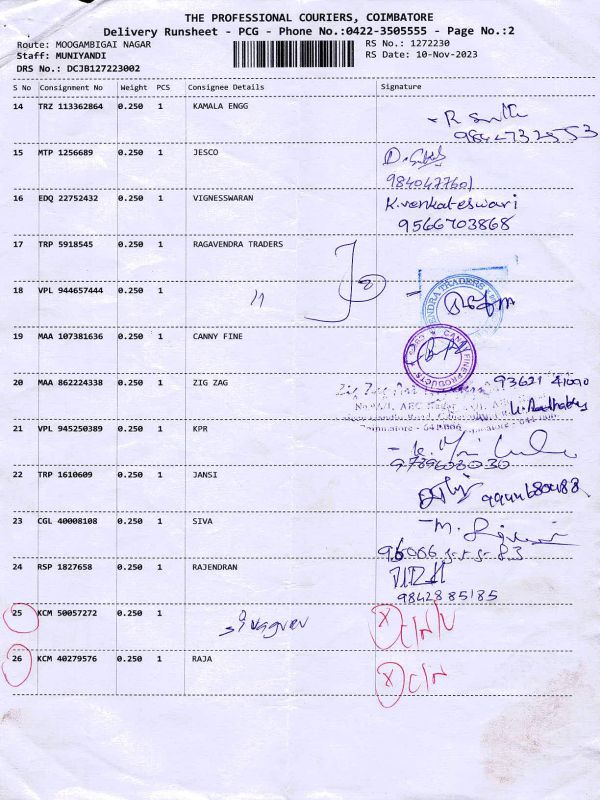 THE PROFESSIONAL COURIERS, COIMBATORE
Delivery Runsheet - PCG - Phone No.:0422-3505555 - Page No.:2
Route: MOOGAMBIGAI NAGAR RS No.: 1272230
Staff: MUNIYANDI RS Date: 10-Nov-2023
DRS No.: DCJB127223002
S No Consignment No Weight PCS Consignee Details Signature
14 TRZ 113362864 0.250 1 KAMALA ENGG
15 MTP 1256689 0.250 1 JESCO
9840477601
16 EDQ 22752432 0.250 1 VIGNESSWARAN K.venkateswari
9566703868
17 TRP 5918545 0.250 1 RAGAVENDRA TRADERS
18 VPL 944657444 0.250 1 "
19 MAA 107381636 0.250 1 CANNY FINE
20 MAA 862224338 0.250 1 ZIG ZAG 93621 41090
21 VPL 945250389 0.250 1 KPR
9789603030
22 TRP 1610609 0.250 1 JANSI 9944680488
23 CGL 40008108 0.250 1 SIVA
24 RSP 1827658 0.250 1 RAJENDRAN
9842885185
25 KCM 50057272 0.250 1 X
26 KCM 40279576 0.250 1 RAJA X